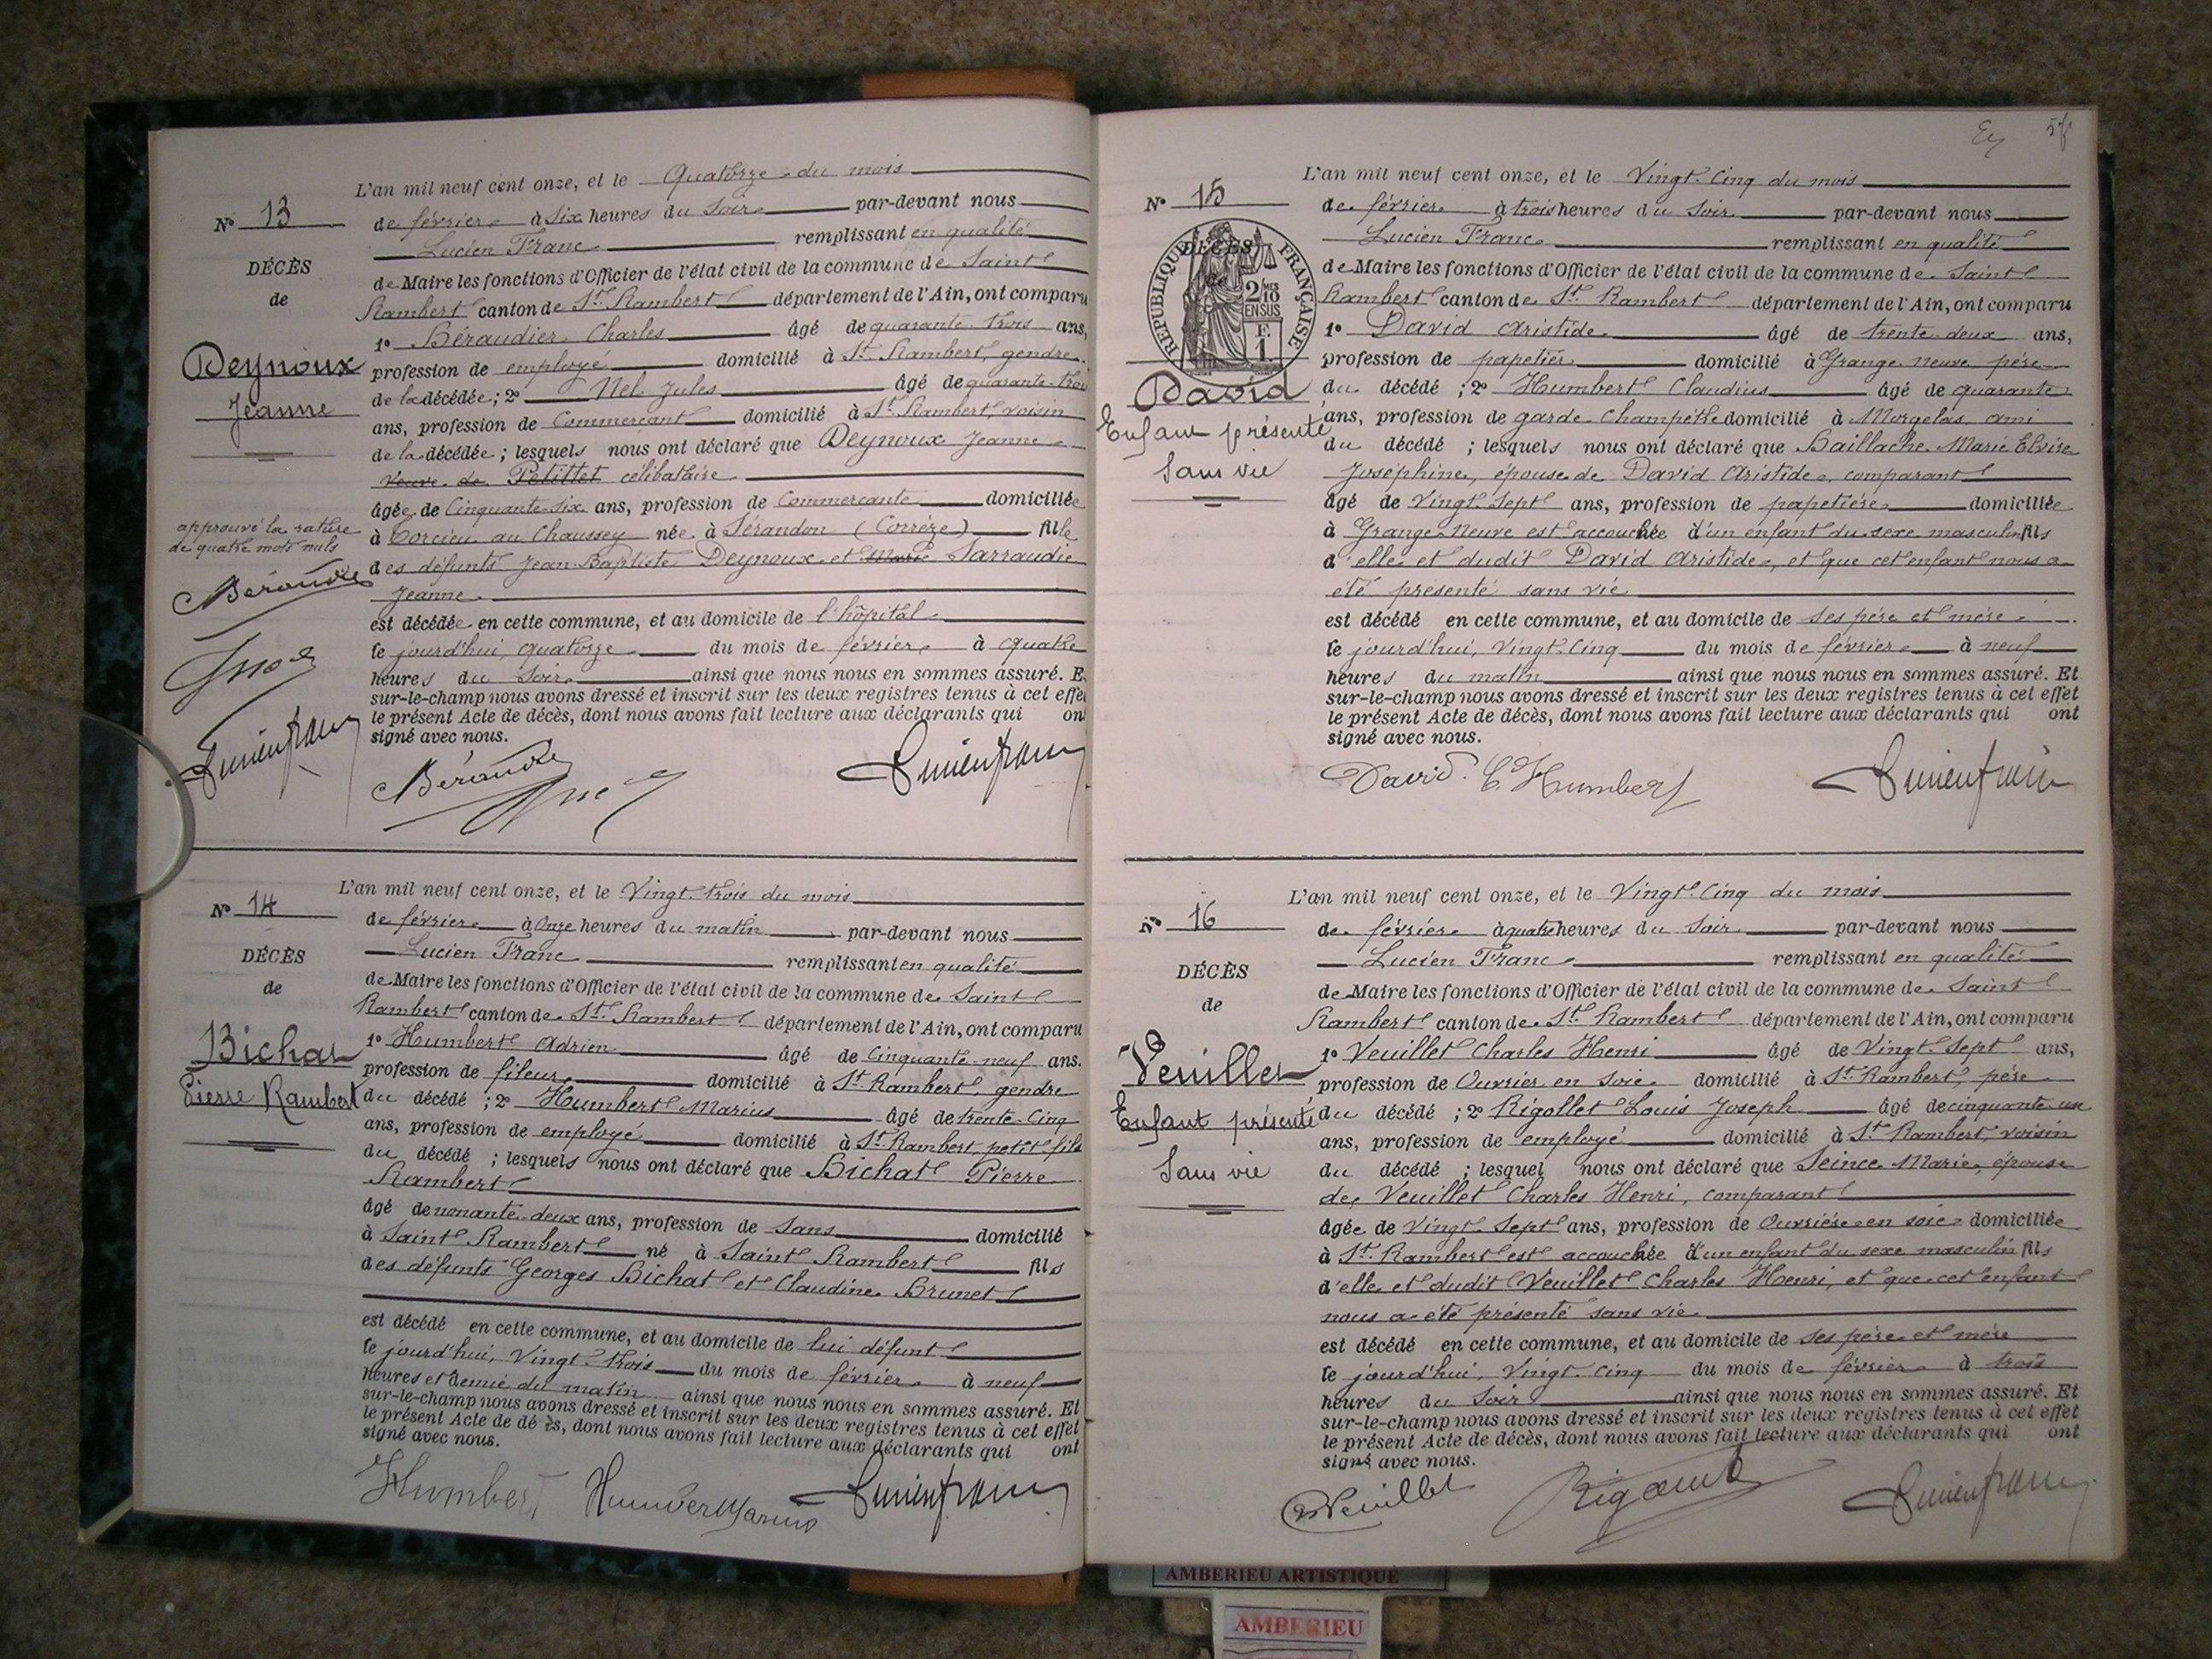 L'an mil neuf cent onze, et le Quatorze du mois
N° 13
de février à six heures du soir par-devant nous
Lucien Franc remplissant en qualité
DÉCÈS
de
de Maire les fonctions d'Officier de l'état civil de la commune de Saint
Rambert canton de St. Rambert département de l'Ain, ont comparu
1° Béraudier Charles âgé de quarante-trois ans,
Deynoux
Jeanne
profession de employé domicilié à St. Rambert, gendre
de la décédée; 2° Nel Jules âgé de quarante-trois
ans, profession de Commerçant domicilié à St. Rambert, voisin
de la décédée; lesquels nous ont déclaré que Deynoux Jeanne
veuve de Petittet célibataire
âgée de Cinquante-six ans, profession de Commerçante domiciliée
approuvé la rature
de quatre mots nuls
à Torcieu au Chaussey née à Sérandon (Corrèze) fille
des défunts Jean Baptiste Deynoux et Marie Sarraudie
Jeanne
est décédée en cette commune, et au domicile de l'hôpital
le jourd'hui, quatorze du mois de février à quatre
heures du soir ainsi que nous nous en sommes assuré. E
sur-le-champ nous avons dressé et inscrit sur les deux registres tenus à cet effet
le présent Acte de décès, dont nous avons fait lecture aux déclarants qui ont
signé avec nous.
Lucien franc
L'an mil neuf cent onze, et le Vingt-trois du mois
N° 14
de février à onze heures du matin par-devant nous
Lucien Franc remplissant en qualité
DÉCÈS
de
de Maire les fonctions d'Officier de l'état civil de la commune de Saint
Rambert canton de St. Rambert département de l'Ain, ont comparu
Bichat
Pierre Rambert
1° Humbert Adrien âgé de Cinquante-neuf ans.
profession de fileur domicilié à St. Rambert, gendre
du décédé; 2° Humbert Marius âgé de trente-cinq
ans, profession de employé domicilié à St. Rambert, petit-fils
du décédé; lesquels nous ont déclaré que Bichat Pierre
Rambert
âgé de nonante-deux ans, profession de sans domicilié
à Saint Rambert né à Saint Rambert fils
des défunts Georges Bichat et Claudine Brunet
est décédé en cette commune, et au domicile de lui défunt
le jourd'hui, Vingt-trois du mois de février à neuf
heures et demie du matin ainsi que nous nous en sommes assuré. Et
sur-le-champ nous avons dressé et inscrit sur les deux registres tenus à cet effet
le présent Acte de dé ès, dont nous avons fait lecture aux déclarants qui ont
signé avec nous.
Humbert Humbert Marius Lucien franc
L'an mil neuf cent onze, et le Vingt-Cinq du mois
N° 15
de février à trois heures du soir par-devant nous
Lucien Franc remplissant en qualité
DÉCÈS
de
RÉPUBLIQUE FRANÇAISE
2/10 MES
EN SUS
F.
1.
de Maire les fonctions d'Officier de l'état civil de la commune de Saint
Rambert canton de St. Rambert département de l'Ain, ont comparu
1° David Aristide âgé de trente-deux ans,
profession de papetier domicilié à Grange Neuve, père
David
Enfant présenté
Sans vie
du décédé; 2° Humbert Claudius âgé de quarante
ans, profession de garde champêtre domicilié à Morgelas ami
du décédé; lesquels nous ont déclaré que Baillache Marie Elvire
Joséphine, épouse de David Aristide, comparant
âgé de Vingt-sept ans, profession de papetière domiciliée
à Grange Neuve est accouchée d'un enfant du sexe masculin fils
d'elle et dudit David Aristide, et que cet enfant nous a
été présenté sans vie
est décédé en cette commune, et au domicile de ses père et mère
le jourd'hui, Vingt-Cinq du mois de février à neuf
heures du matin ainsi que nous nous en sommes assuré. Et
sur-le-champ nous avons dressé et inscrit sur les deux registres tenus à cet effet
le présent Acte de décès, dont nous avons fait lecture aux déclarants qui ont
signé avec nous.
David C. Humbert Lucien franc
L'an mil neuf cent onze, et le Vingt-Cinq du mois
N° 16
de février à quatre heures du soir par-devant nous
Lucien Franc remplissant en qualité
DÉCÈS
de
de Maire les fonctions d'Officier de l'état civil de la commune de Saint
Rambert canton de St. Rambert département de l'Ain, ont comparu
Veuillet
Enfant présenté
Sans vie
1° Veuillet Charles Henri âgé de Vingt-Sept ans,
profession de Ouvrier en soie domicilié à St. Rambert, père
du décédé; 2° Rigollet Louis Joseph âgé de cinquante-un
ans, profession de employé domicilié à St. Rambert, voisin
du décédé; lesquel nous ont déclaré que Seince Marie, épouse
de Veuillet Charles Henri, comparant
âgée de Vingt-Sept ans, profession de Ouvrière en soie domiciliée
à St. Rambert est accouchée d'un enfant du sexe masculin fils
d'elle et dudit Veuillet Charles Henri, et que cet enfant
nous a été présenté sans vie
est décédé en cette commune, et au domicile de ses père et mère
le jourd'hui, Vingt-Cinq du mois de février à trois
heures du Soir ainsi que nous nous en sommes assuré. Et
sur-le-champ nous avons dressé et inscrit sur les deux registres tenus à cet effet
le présent Acte de décès, dont nous avons fait lecture aux déclarants qui ont
signé avec nous.
Veuillet Lucien franc
AMBERIEU ARTISTIQUE
AMBERIEU